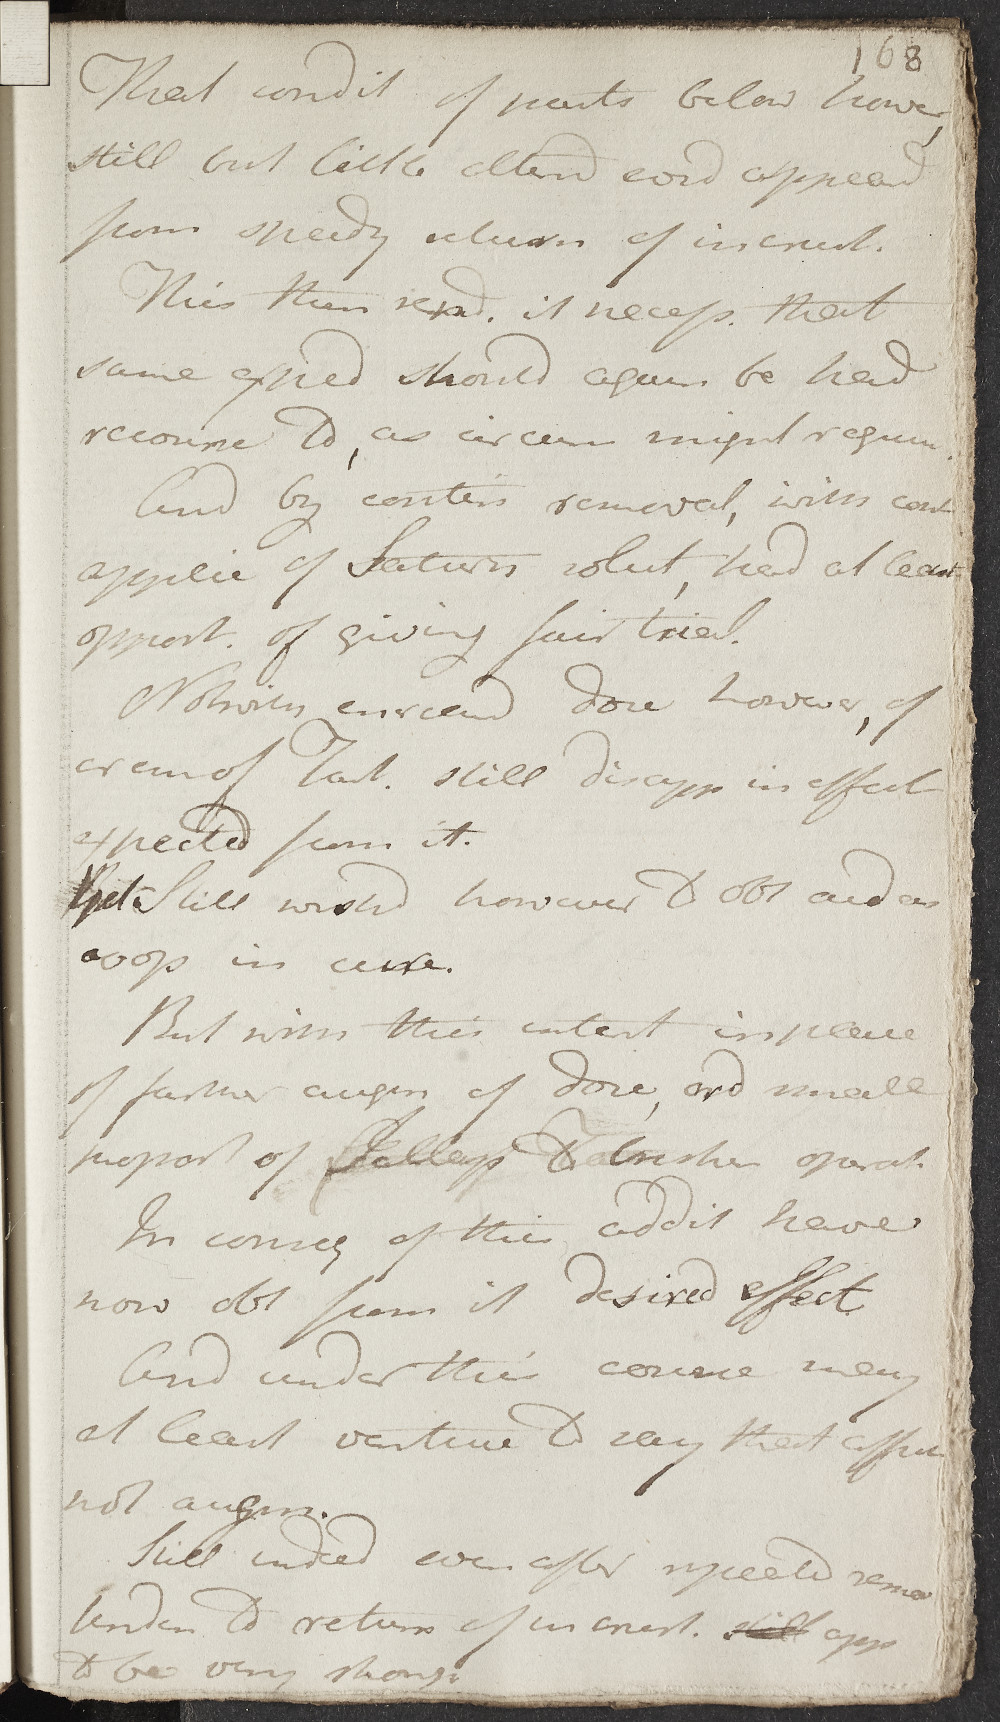 168
That condit of parts below howev,
still but little alterd evid appeard
from speedy return of incrust.
This then rend. it necess. that
same exped should again be had
recourse to, as circum might requir.
And by contin removal, with cont
applic of Saturn solut, had at least
opport. of giving fair trial.
Notwith increasd dose however, of
crem of Tart. still disapp in effect
expected from it.
Still wishd however to obt aid as
coop in cure.
But with this intent in place
of farther augm of dose, ord small
proport of Jallap to brisken operat.
In conseq of this addit have
now obt from it desired effect.
And under this course may
at least venture to say that affec
not augm.
Still indeed even after repeated remov
tenden to return of incrust. still app
to be very strong.